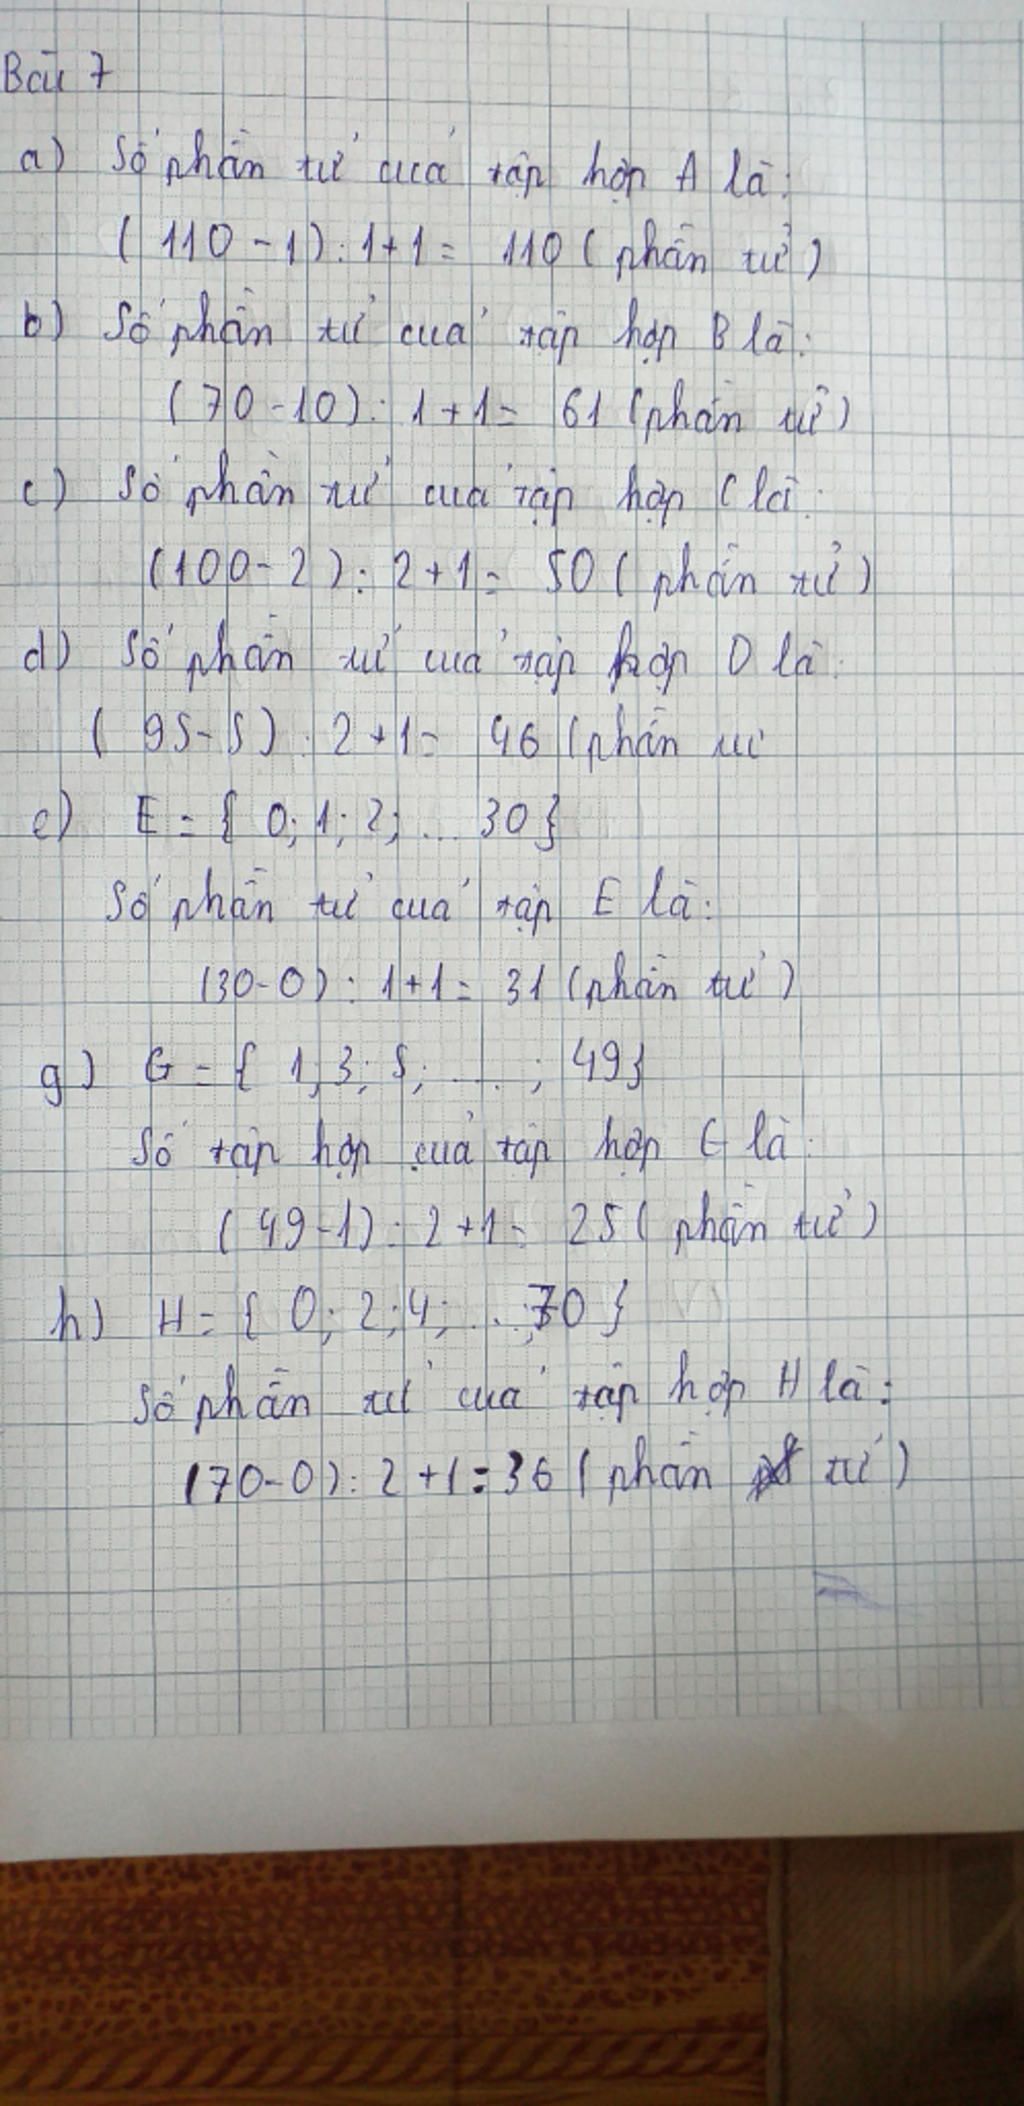 Bài 7
a) Số phần tử của tập hợp A là:
( 110 - 1) : 1+1 = 110 ( phần tử )
b) Số phần tử của tập hợp B là:
( 70 - 10) : 1 + 1 = 61 (phần tử)
c) Số phần tử của tập hợp C là:
(100 - 2 ) : 2 + 1 = 50 ( phần tử )
d) Số phần tử của tập hợp D là:
( 95 - 5 ) : 2 + 1 = 46 (phần tử
e) E = { 0; 1; 2; ... 30 }
Số phần tử của tập E là:
(30 - 0) : 1 + 1 = 31 (phần tử )
g) G = { 1; 3; 5; ... ; 49}
Số tập hợp của tập hợp G là:
( 49 - 1) : 2 + 1 = 25 ( phần tử )
h) H = { 0; 2; 4; ...; 70 }
Số phần tử của tập hợp H là:
(70 - 0) : 2 + 1 = 36 ( phần tử )